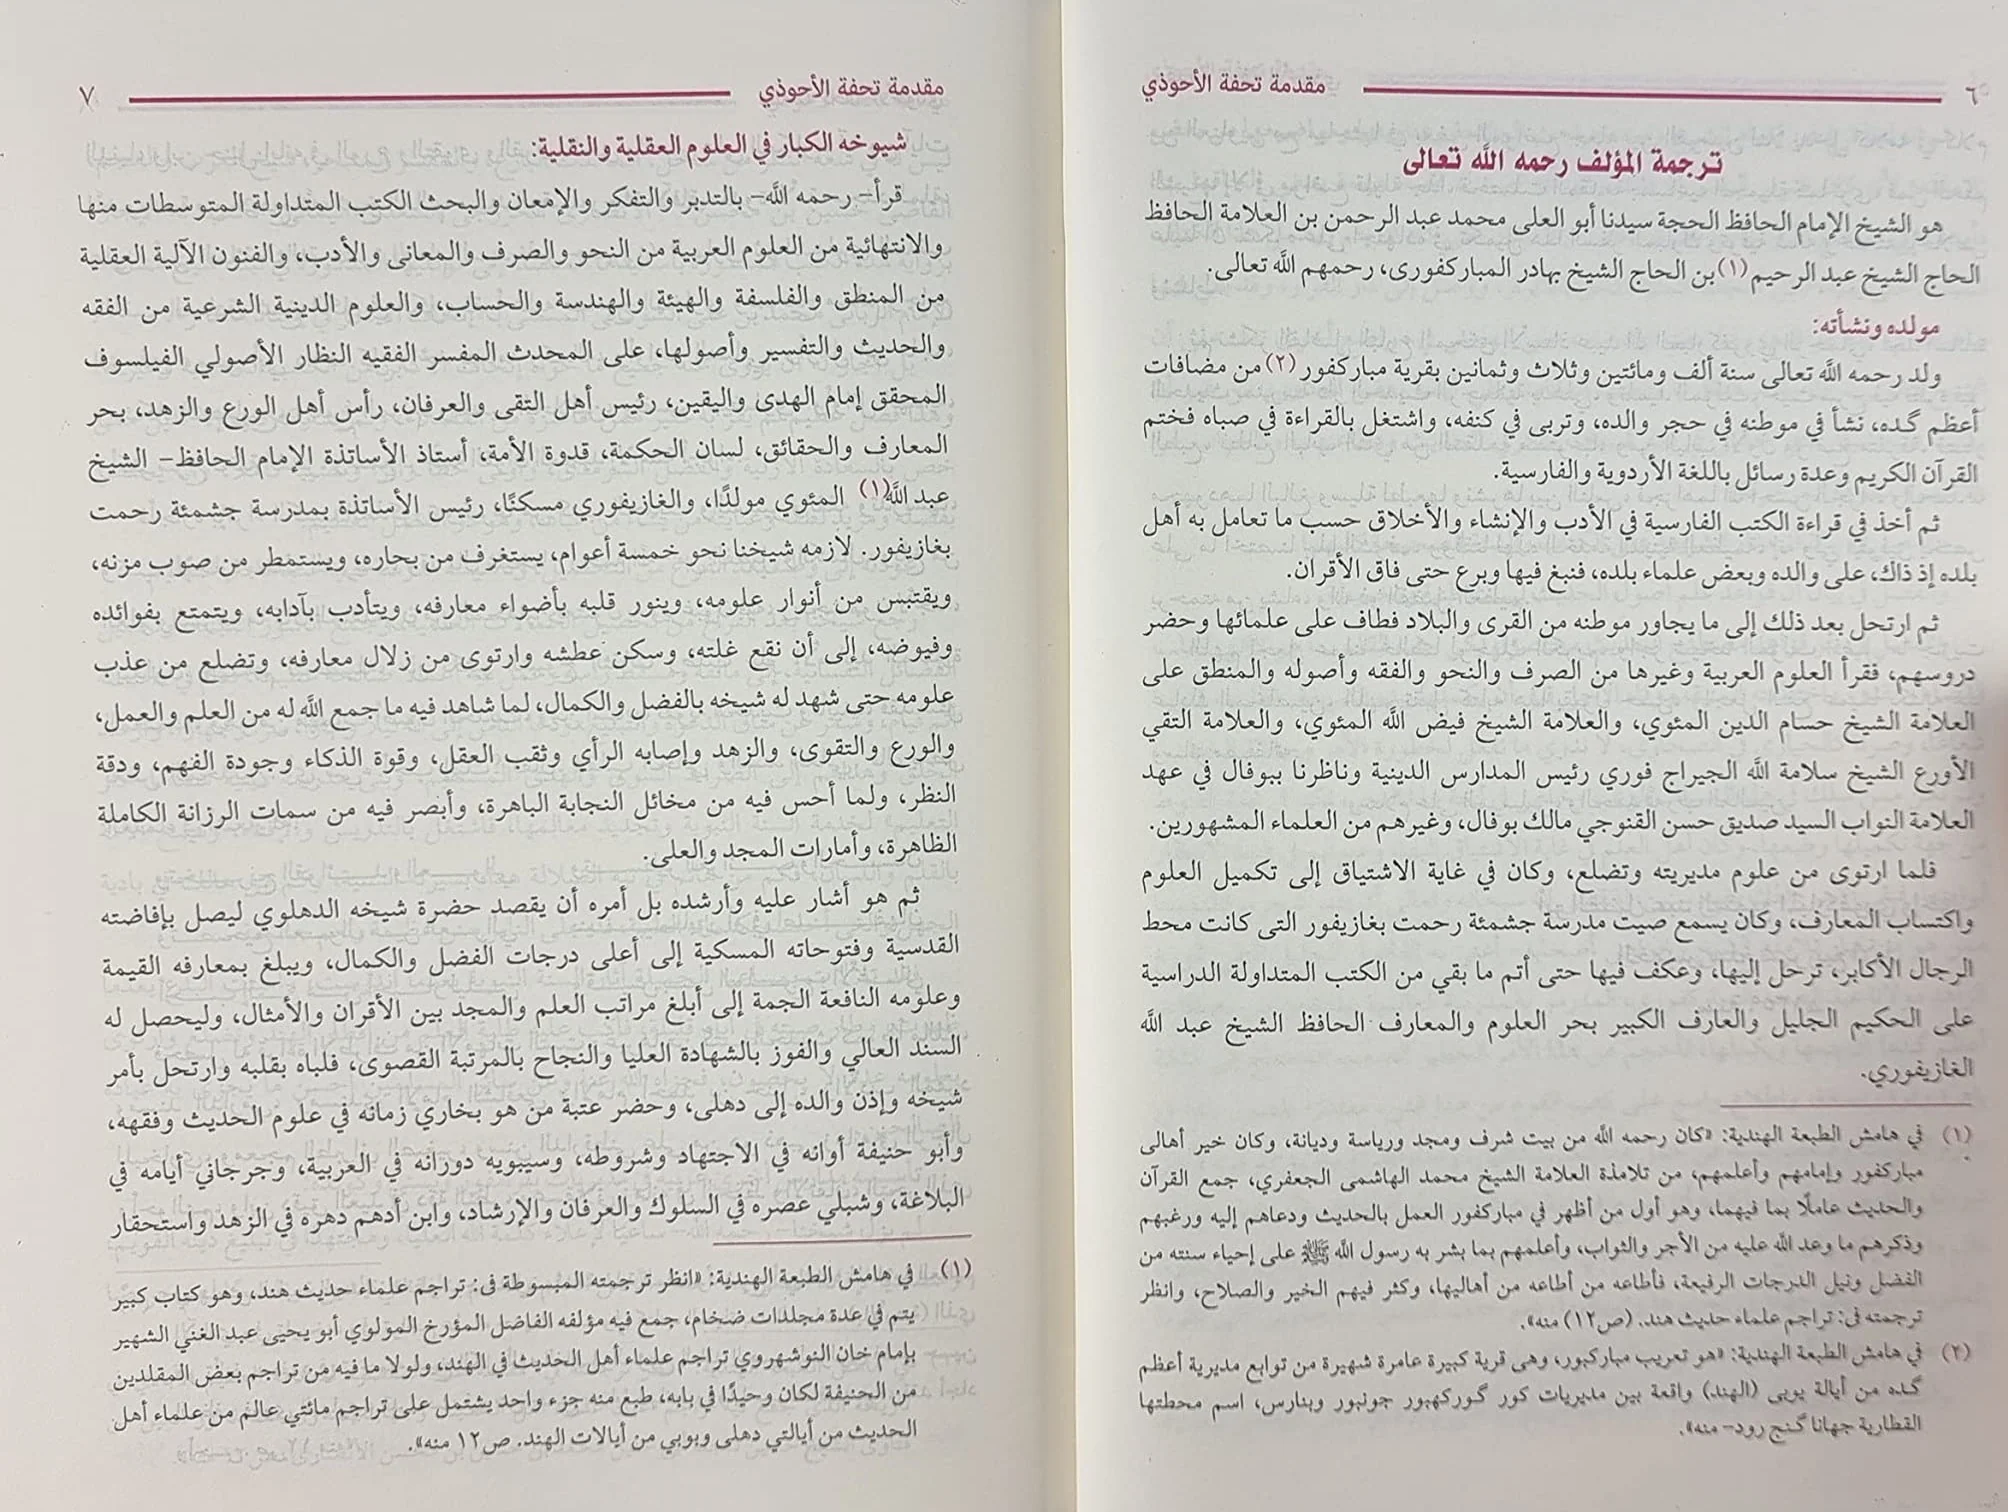 ٦ مقدمة تحفة الأحوذي
ترجمة المؤلف رحمه اللَّه تعالى
هو الشيخ الإمام الحافظ الحجة سيدنا أبو العلى محمد عبد الرحمن بن العلامة الحافظ
الحاج الشيخ عبد الرحيم (١) بن الحاج الشيخ بهادر المباركفورى، رحمهم اللَّه تعالى.
مولده ونشأته:
ولد رحمه اللَّه تعالى سنة ألف ومائتين وثلاث وثمانين بقرية مباركفور (٢) من مضافات
أعظم گده، نشأ في موطنه في حجر والده، وتربى في كنفه، واشتغل بالقراءة في صباه فختم
القرآن الكريم وعدة رسائل باللغة الأردوية والفارسية.
ثم أخذ في قراءة الكتب الفارسية في الأدب والإنشاء والأخلاق حسب ما تعامل به أهل
بلده إذ ذاك، على والده وبعض علماء بلده، فنبغ فيها وبرع حتى فاق الأقران.
ثم ارتحل بعد ذلك إلى ما يجاور موطنه من القرى والبلاد فطاف على علمائها وحضر
دروسهم، فقرأ العلوم العربية وغيرها من الصرف والنحو والفقه وأصوله والمنطق على
العلامة الشيخ حسام الدين المئوي، والعلامة الشيخ فيض اللَّه المئوي، والعلامة التقي
الأورع الشيخ سلامة اللَّه الجيراج فوري رئيس المدارس الدينية وناظرنا ببوفال في عهد
العلامة النواب السيد صديق حسن القنوجي مالك بوفال، وغيرهم من العلماء المشهورين.
فلما ارتوى من علوم مديريته وتضلع، وكان في غاية الاشتياق إلى تكميل العلوم
واكتساب المعارف، وكان يسمع صيت مدرسة جشمئة رحمت بغازيفور التى كانت محط
الرجال الأكابر، ترحل إليها، وعكف فيها حتى أتم ما بقي من الكتب المتداولة الدراسية
على الحكيم الجليل والعارف الكبير بحر العلوم والمعارف الحافظ الشيخ عبد اللَّه
الغازيفوري.
(١) في هامش الطبعة الهندية: «كان رحمه اللَّه من بيت شرف ومجد ورياسة وديانة، وكان خير أهالى
مباركفور وإمامهم وأعلمهم، من تلامذة العلامة الشيخ محمد الهاشمى الجعفري، جمع القرآن
والحديث عاملًا بما فيهما، وهو أول من أظهر في مباركفور العمل بالحديث ودعاهم إليه ورغبهم
وذكرهم ما وعد اللَّه عليه من الأجر والثواب، وأعلمهم بما بشر به رسول اللَّه ﷺ على إحياء سنته من
الفضل ونيل الدرجات الرفيعة، فأطاعه من أطاعه من أهاليها، وكثر فيهم الخير والصلاح، وانظر
ترجمته فى: تراجم علماء حديث هند. (ص١٢) منه».
(٢) في هامش الطبعة الهندية: «هو تعريب مباركبور، وهى قرية كبيرة عامرة شهيرة من توابع مديرية أعظم
گده من أيالة يوپى (الهند) واقعة بين مديريات كور گورکهبور جونبور وبنارس، اسم محطتها
القطارية جهانا گنج رود- منه».
مقدمة تحفة الأحوذي ٧
شيوخه الكبار في العلوم العقلية والنقلية:
قرأ- رحمه اللَّه- بالتدبر والتفكر والإمعان والبحث الكتب المتداولة المتوسطات منها
والانتهائية من العلوم العربية من النحو والصرف والمعانى والأدب، والفنون الآلية العقلية
من المنطق والفلسفة والهيئة والهندسة والحساب، والعلوم الدينية الشرعية من الفقه
والحديث والتفسير وأصولها، على المحدث المفسر الفقيه النظار الأصولي الفيلسوف
المحقق إمام الهدى واليقين، رئيس أهل التقى والعرفان، رأس أهل الورع والزهد، بحر
المعارف والحقائق، لسان الحكمة، قدوة الأمة، أستاذ الأساتذة الإمام الحافظ- الشيخ
عبد اللَّه(١) المئوي مولدًا، والغازيفوري مسكنًا، رئيس الأساتذة بمدرسة جشمئة رحمت
بغازيفور. لازمه شيخنا نحو خمسة أعوام، يستغرف من بحاره، ويستمطر من صوب مزنه،
ويقتبس من أنوار علومه، وينور قلبه بأضواء معارفه، ويتأدب بآدابه، ويتمتع بفوائده
وفيوضه، إلى أن نقع غلته، وسكن عطشه وارتوى من زلال معارفه، وتضلع من عذب
علومه حتى شهد له شيخه بالفضل والكمال، لما شاهد فيه ما جمع اللَّه له من العلم والعمل،
والورع والتقوى، والزهد وإصابه الرأي وثقب العقل، وقوة الذكاء وجودة الفهم، ودقة
النظر، ولما أحس فيه من مخائل النجابة الباهرة، وأبصر فيه من سمات الرزانة الكاملة
الظاهرة، وأمارات المجد والعلى.
ثم هو أشار عليه وأرشده بل أمره أن يقصد حضرة شيخه الدهلوي ليصل بإفاضته
القدسية وفتوحاته المسكية إلى أعلى درجات الفضل والكمال، ويبلغ بمعارفه القيمة
وعلومه النافعة الجمة إلى أبلغ مراتب العلم والمجد بين الأقران والأمثال، وليحصل له
السند العالي والفوز بالشهادة العليا والنجاح بالمرتبة القصوى، فلباه بقلبه وارتحل بأمر
شيخه وإذن والده إلى دهلى، وحضر عتبة من هو بخاري زمانه في علوم الحديث وفقهه،
وأبو حنيفة أوانه في الاجتهاد وشروطه، وسيبويه دورانه في العربية، وجرجاني أيامه في
البلاغة، وشبلي عصره في السلوك والعرفان والإرشاد، وابن أدهم دهره في الزهد واستحقار
(١) في هامش الطبعة الهندية: «انظر ترجمته المبسوطة فى: تراجم علماء حديث هند، وهو كتاب كبير
يتم في عدة مجلدات ضخام، جمع فيه مؤلفه الفاضل المؤرخ المولوي أبو يحيى عبد الغني الشهير
بإمام خان النوشهروي تراجم علماء أهل الحديث في الهند، ولولا ما فيه من تراجم بعض المقلدين
من الحنيفة لكان وحيدًا في بابه، طبع منه جزء واحد يشتمل على تراجم مائتي عالم من علماء أهل
الحديث من أيالتي دهلى وبوبي من أيالات الهند. ص١٢ منه».